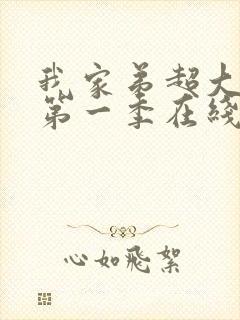 我家弟超大
第一季在线
心如飛絮